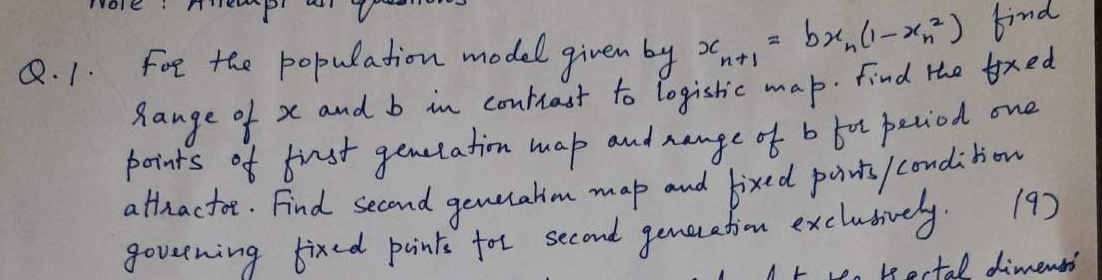 Note : Attempt all questions
Q.1. For the population model given by xₙ₊₁ = bxₙ(1-xₙ²) find
range of x and b in contrast to logistic map. Find the fixed
points of first generation map and range of b for period one
attractor. Find second generation map and fixed points/condition
governing fixed points for second generation exclusively. (9)
fractal dimensi